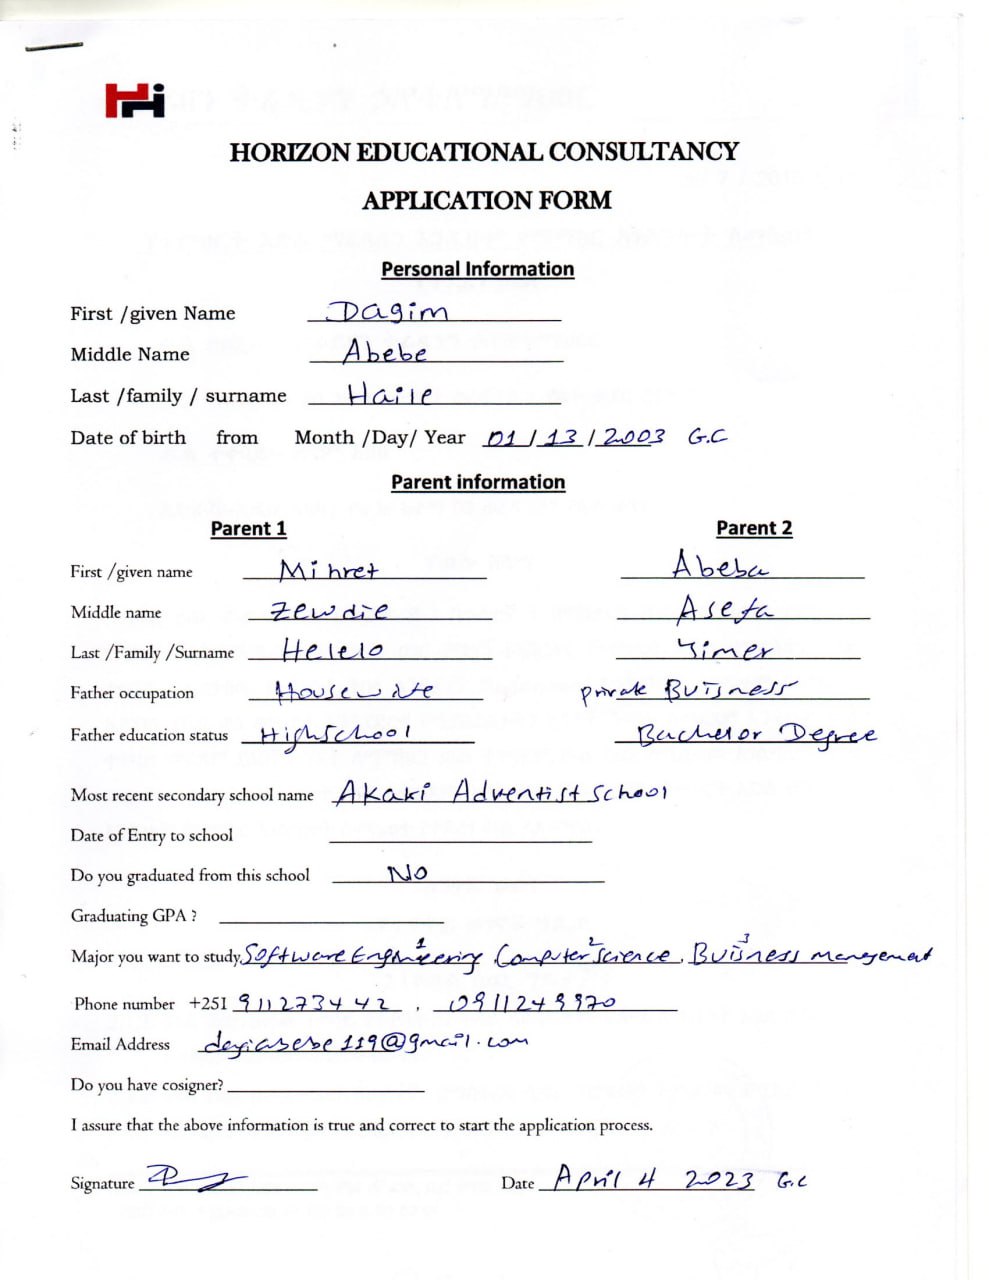 Hi
HORIZON EDUCATIONAL CONSULTANCY
APPLICATION FORM
Personal Information
First /given Name Dagim
Middle Name Abebe
Last /family / surname Haile
Date of birth from Month /Day/ Year 01 / 13 / 2003 G.C
Parent information
Parent 1 Parent 2
First /given name Mihret Abeba
Middle name Zewdie Asefa
Last /Family /Surname Helelo Yimer
Father occupation Housewife private Buisness
Father education status Highschool Bachelor Degree
Most recent secondary school name Akaki Adventist school
Date of Entry to school
Do you graduated from this school No
Graduating GPA ?
Major you want to study Software Engineering 1, Computer science 2, Buisness management 3
Phone number +251 911273442 , 0911249970
Email Address
Do you have cosigner?
I assure that the above information is true and correct to start the application process.
Signature Date April 4 2023 G.C